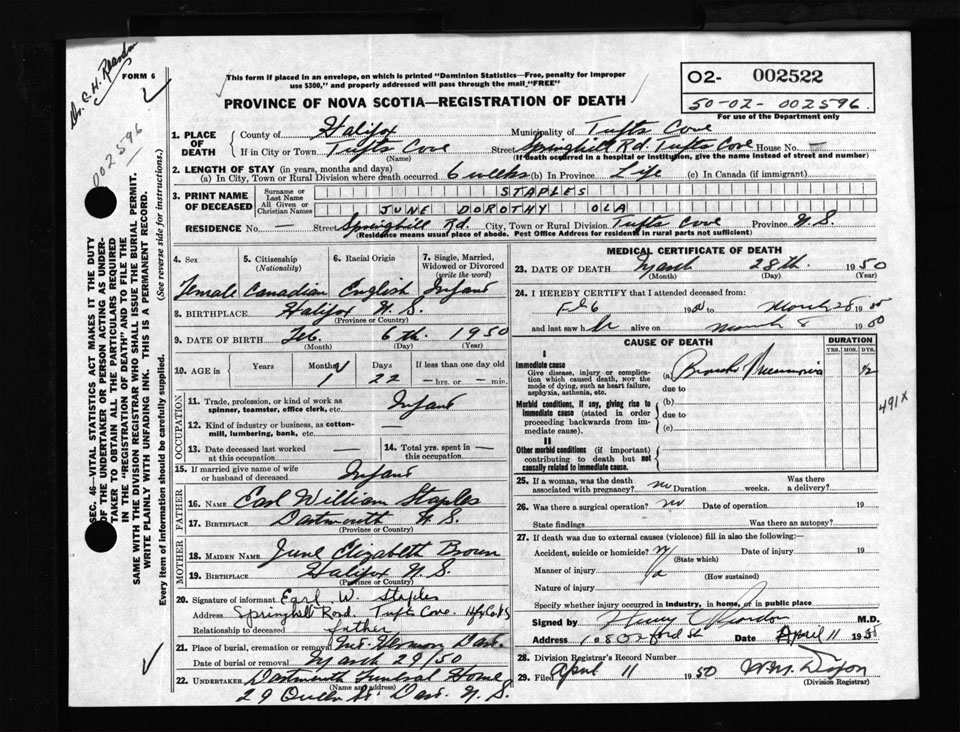 Dr. C. H. Reardon
FORM 6
002596
This form if placed in an envelope, on which is printed "Dominion Statistics—Free, penalty for improper
use $300," and properly addressed will pass through the mail, "FREE"
O2- 002522
50-02-002596.
For use of the Department only
PROVINCE OF NOVA SCOTIA—REGISTRATION OF DEATH
SEC. 46—VITAL STATISTICS ACT MAKES IT THE DUTY
OF THE UNDERTAKER OR PERSON ACTING AS UNDER-
TAKER TO OBTAIN ALL THE PARTICULARS REQUIRED
IN THE "REGISTRATION OF DEATH" AND TO FILE THE
SAME WITH THE DIVISION REGISTRAR WHO SHALL ISSUE THE BURIAL PERMIT.
WRITE PLAINLY WITH UNFADING INK. THIS IS A PERMANENT RECORD.
Every item of information should be carefully supplied. (See reverse side for instructions.)
1. PLACE OF DEATH County of Halifax Municipality of Tufts Cove
If in City or Town Tufts Cove (Name) Street Springhill Rd. Tufts Cove House No. —
(If death occurred in a hospital or institution, give the name instead of street and number)
2. LENGTH OF STAY (in years, months and days)
(a) In City, Town or Rural Division where death occurred 6 weeks (b) In Province Life (c) In Canada (if immigrant)
3. PRINT NAME OF DECEASED Surname or Last Name STAPLES
All Given or Christian Names JUNE DOROTHY OLA
RESIDENCE No. — Street Springhill Rd. City, Town or Rural Division Tufts Cove Province N.S.
(Residence means usual place of abode. Post Office Address for residents in rural parts not sufficient)
4. Sex 5. Citizenship (Nationality) 6. Racial Origin 7. Single, Married, Widowed or Divorced (write the word)
Female Canadian English Infant
8. BIRTHPLACE Halifax N.S.
(Province or Country)
9. DATE OF BIRTH Feb. 6th. 1950
(Month) (Day) (Year)
10. AGE in Years Months Days If less than one day old
1 22 —hrs. or —min.
OCCUPATION
11. Trade, profession, or kind of work as
spinner, teamster, office clerk, etc. Infant
12. Kind of industry or business, as cotton-
mill, lumbering, bank, etc. —
13. Date deceased last worked at this occupation — 14. Total yrs. spent in this occupation —
15. If married give name of wife
or husband of deceased Infant
FATHER
16. NAME Earl William Staples
17. BIRTHPLACE Dartmouth N.S.
(Province or Country)
MOTHER
18. MAIDEN NAME June Elizabeth Brown
19. BIRTHPLACE Halifax N.S.
(Province or Country)
20. Signature of informant Earl W. Staples
Address Springhill Road. Tufts Cove.
Relationship to deceased father
21. Place of burial, cremation or removal Mt. Hermon Dart.
Date of burial or removal March 29/50
22. UNDERTAKER Dartmouth Funeral Home
(Name and address)
29 Queen St. Dart. N.S.
MEDICAL CERTIFICATE OF DEATH
23. DATE OF DEATH March 28th. 1950
(Month) (Day) (Year)
24. I HEREBY CERTIFY that I attended deceased from:
Feb 6 19 to March 28 19
and last saw h alive on March 8 1950
CAUSE OF DEATH
DURATION
YRS. MOS. DYS.
I
Immediate cause
Give disease, injury or complica-
tion which caused death, NOT the
mode of dying, such as heart failure,
asphyxia, asthenia, etc.
(a) Broncho Pneumonia ½
due to
Morbid conditions, if any, giving rise to
immediate cause (stated in order
proceeding backwards from im-
mediate cause).
(b)
due to
(c)
491X
II
Other morbid conditions (if important)
contributing to death but not
causally related to immediate cause.
25. If a woman, was the death
associated with pregnancy? no Duration weeks. Was there a delivery?
26. Was there a surgical operation? no Date of operation 19
State findings Was there an autopsy?
27. If death was due to external causes (violence) fill in also the following:—
Accident, suicide or homicide? (State which) Date of injury 19
Manner of injury (How sustained)
Nature of injury
Specify whether injury occurred in industry, in home, or in public place
Signed by Henry Reardon M.D.
Address Date April 11 19
28. Division Registrar's Record Number
29. Filed April 11 1950 W.M. Dixon
(Division Registrar)